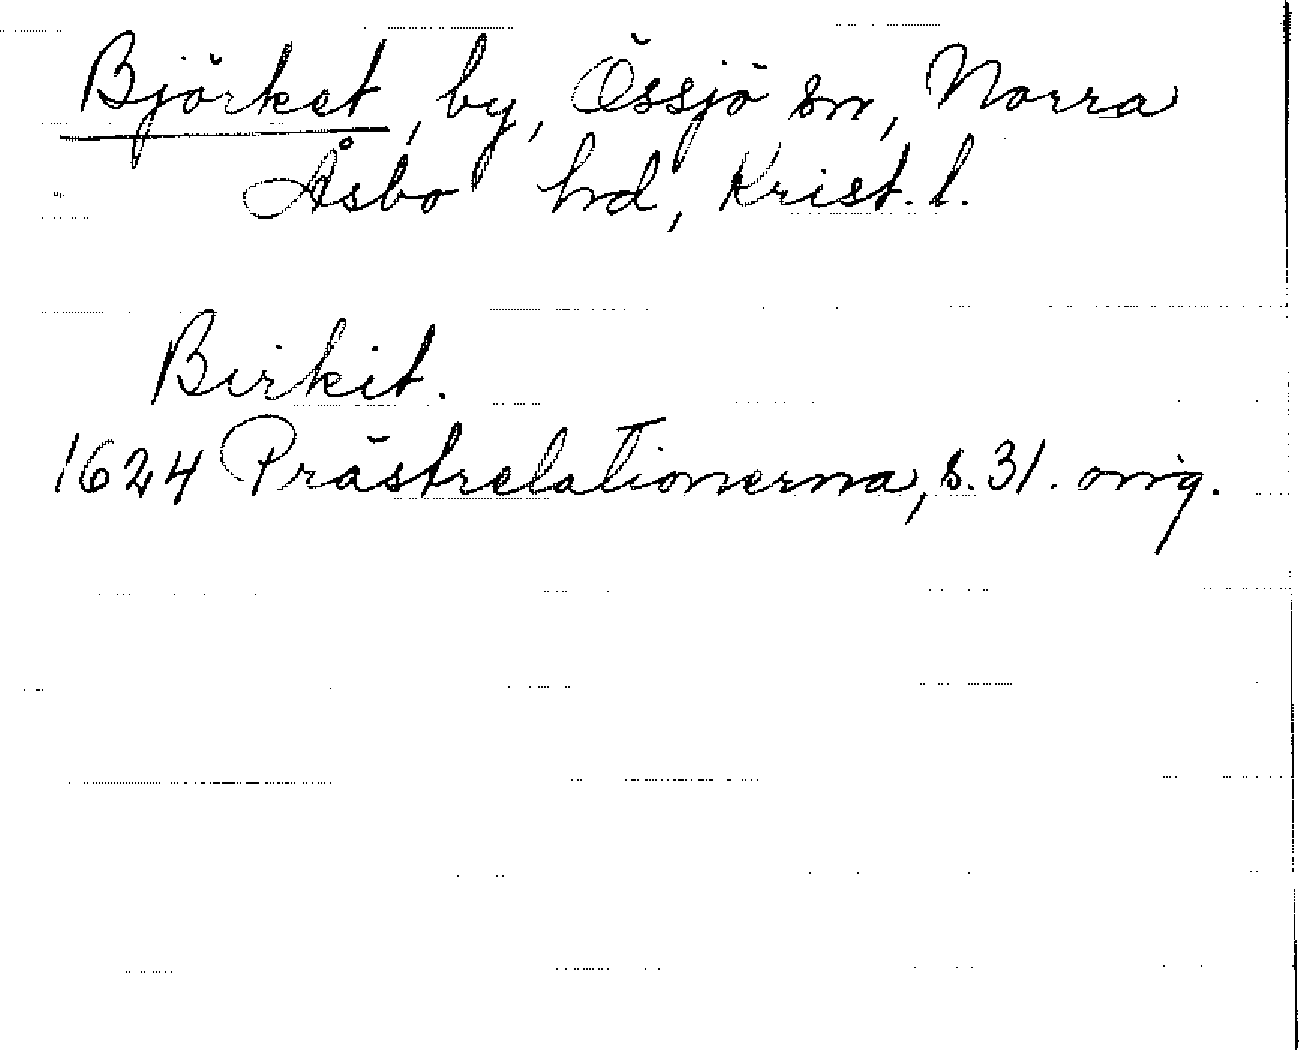 Björket, by, Össjö sn, Norra
Åsbo hd, Krist. l.
Birkit.
1624 Prästrelationerna, s. 31. orig.